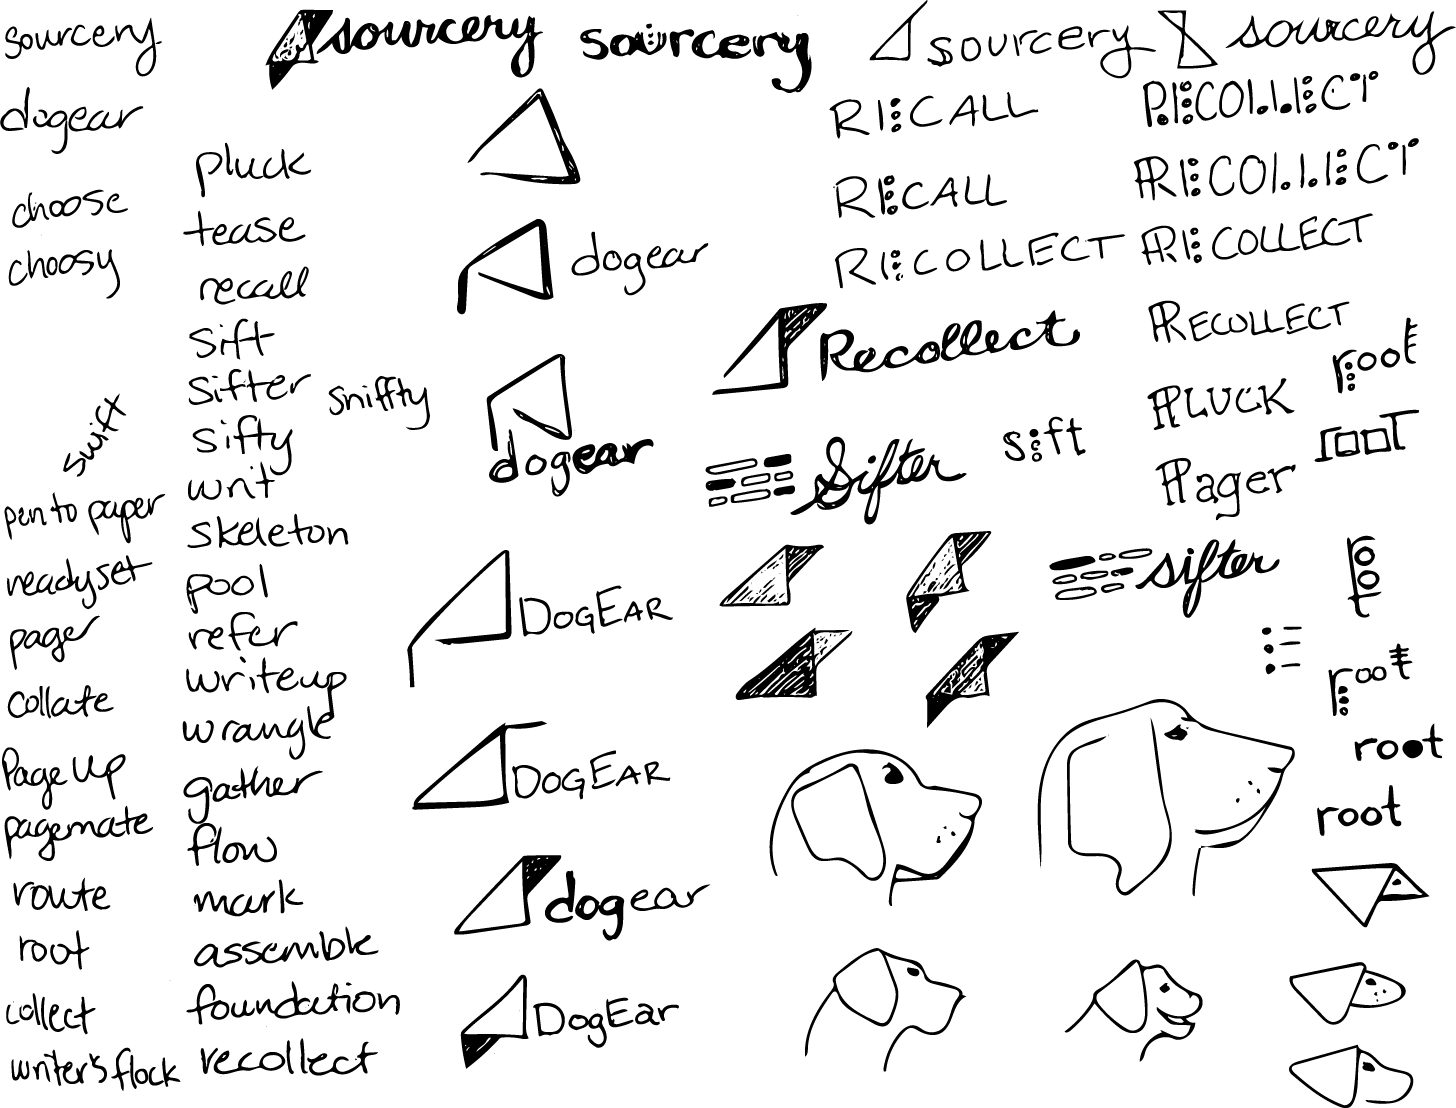 sourcery
dogear
choose
choosy
swift
pen to paper
readyset
pager
collate
PageUp
pagemate
route
root
collect
writer's flock
pluck
tease
recall
sift
sifter
sniffty
sifty
writ
skeleton
pool
refer
writeup
wrangle
gather
flow
mark
assemble
foundation
recollect
sourcery
sourcery
dogear
dogear
DOGEAR
DOGEAR
dogear
DogEar
sourcery
sourcery
RECALL
RECALL
RECOLLECT
Recollect
Sifter
sift
RECOLLECT
RECOLLECT
RECOLLECT
RECOLLECT
PLUCK
Pager
sifter
root
root
root
root
root
root